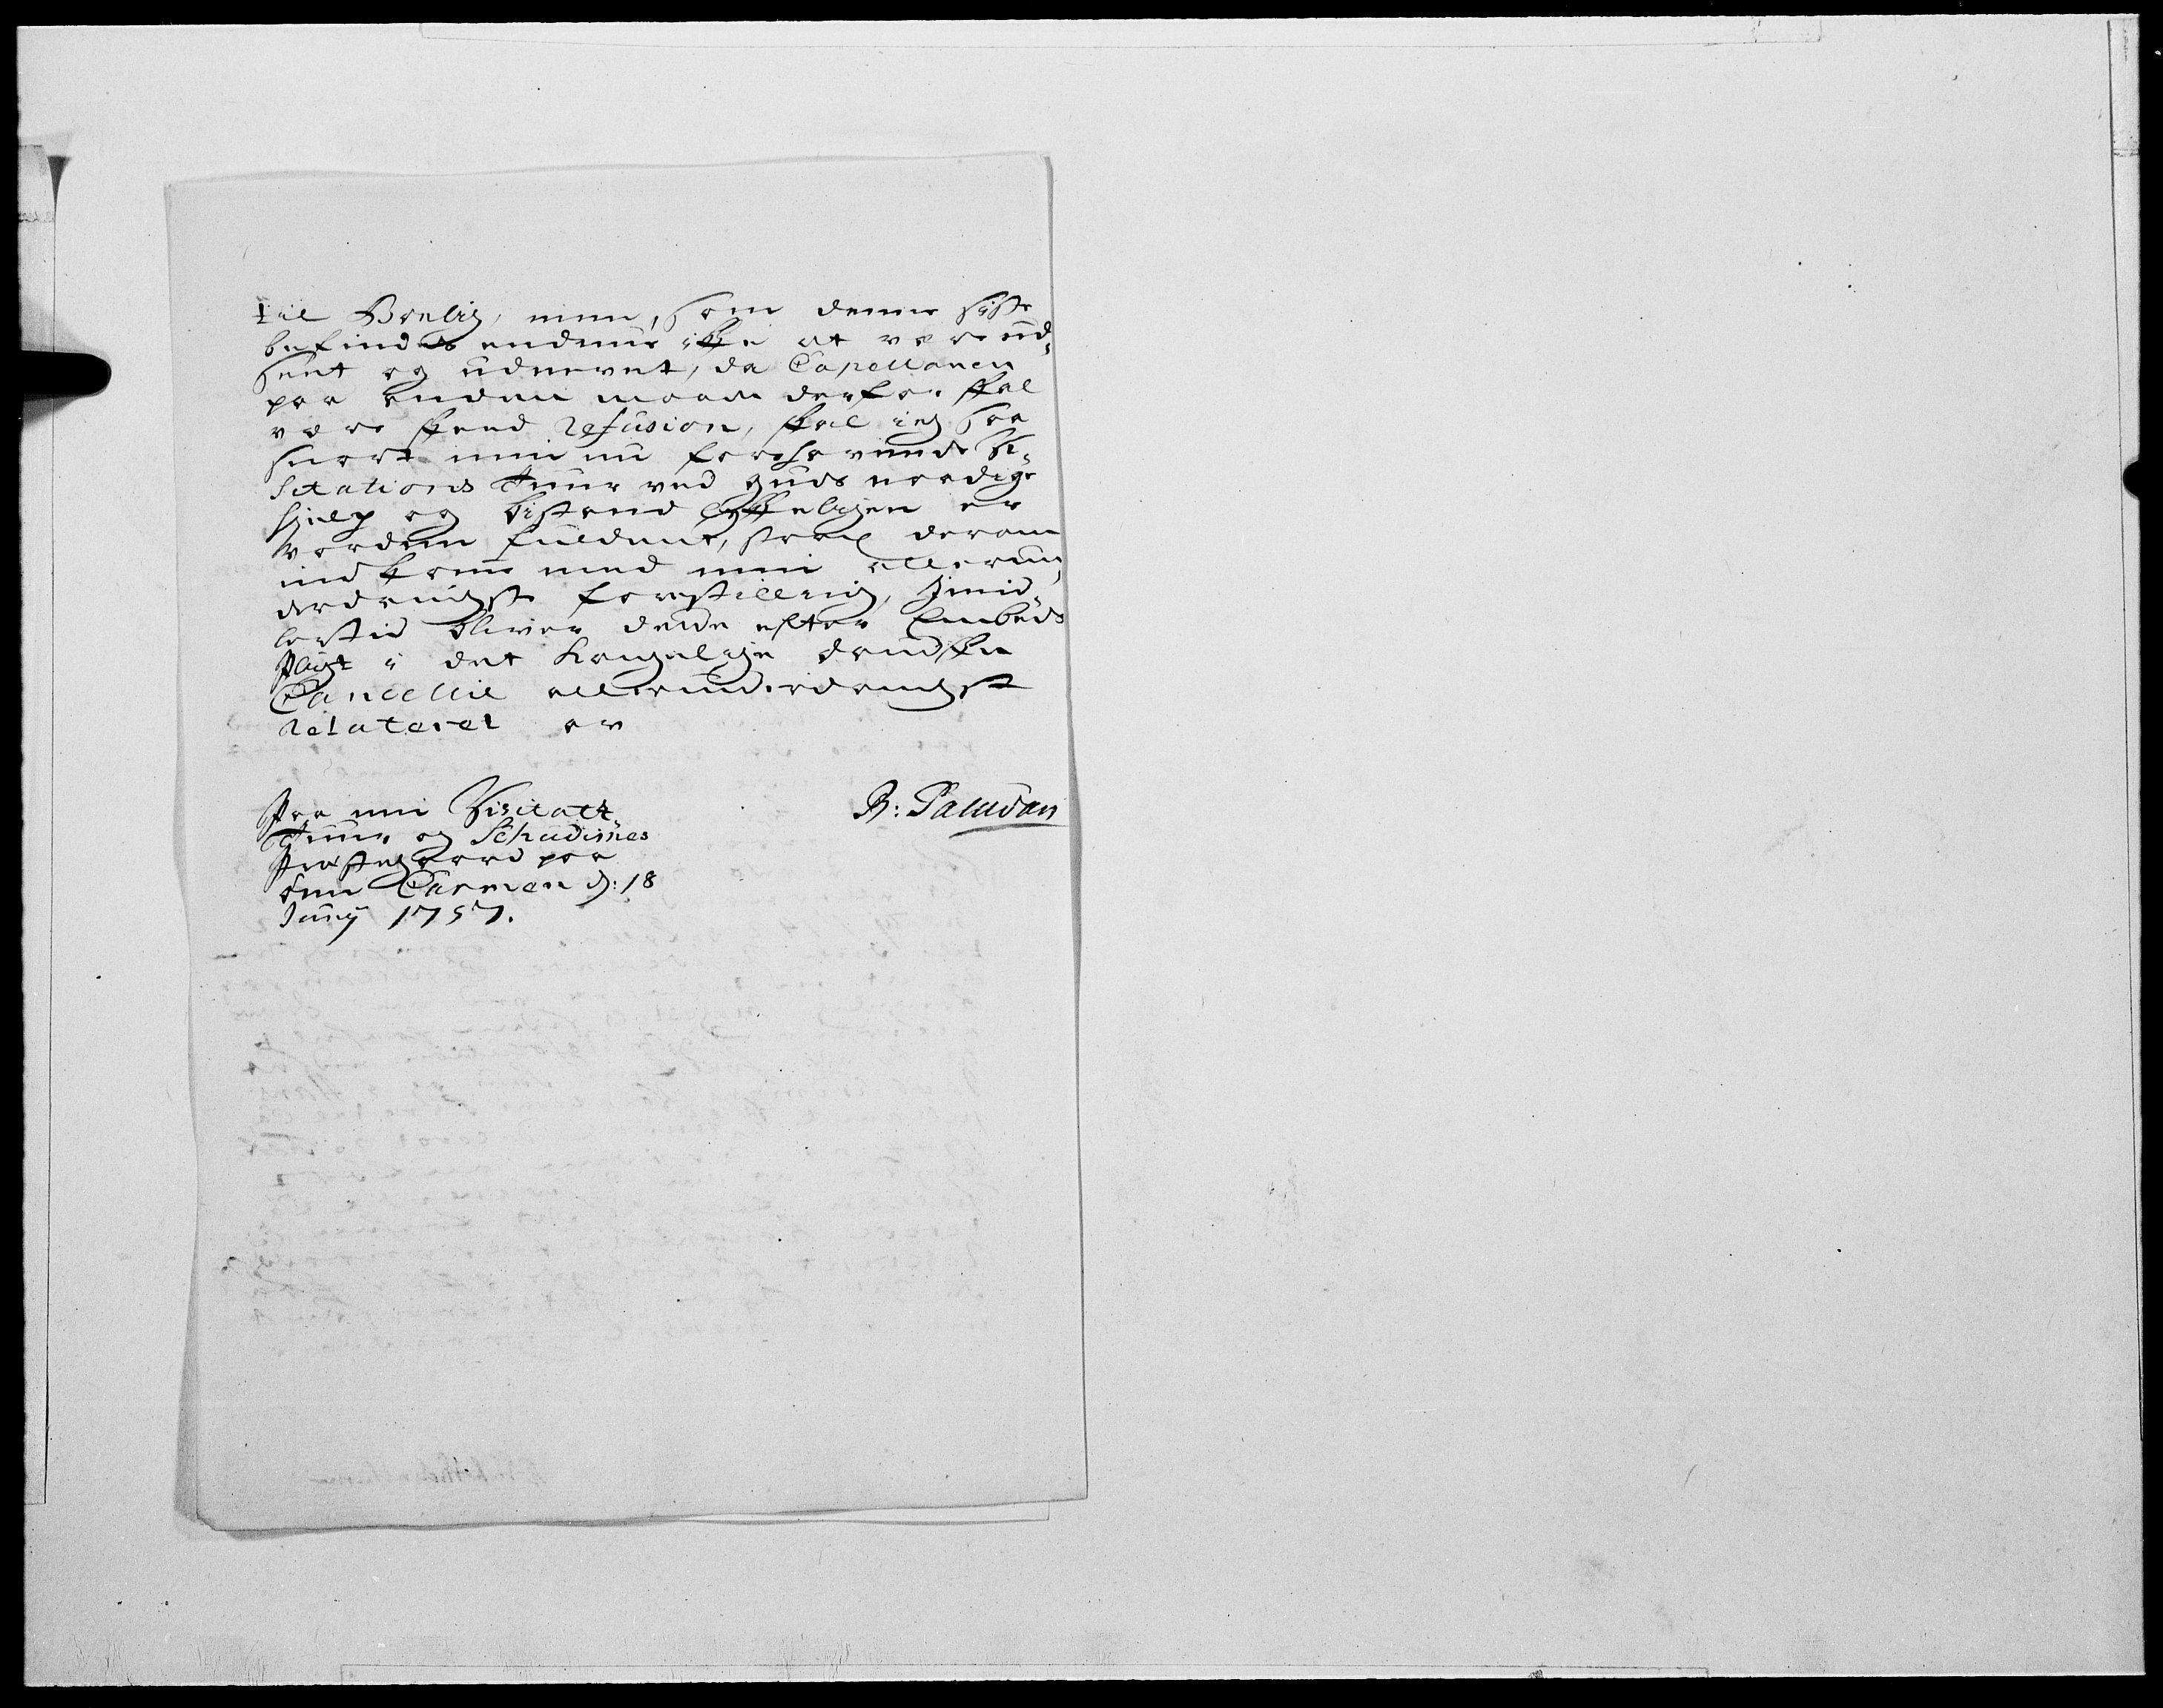 til Bwelig, men, som denne siste
befindes endnu icke at være ud¬
seet og udnevnt, da Capellanen
paa anden maade derfor skal
være skeed refusion, skal ieg saa
snart min nu forehavende Vi¬
sitations Tuur ved Guds naadige
hielp og bistand lykkeligen er
vorden fuldendt, strax derom
indkomme med min allerun¬
derdanigst forestilling, Imid¬
lertid bliver dette efter Embeds
Pligt i det Kongelige Danske
Cancellie allerunderdanigst
relateret av
Paa min Visitatz
Tuur og Schudisnes
Præstegaard paa
Øen Carmen d: 18
Junij 1757.
B: Paludan